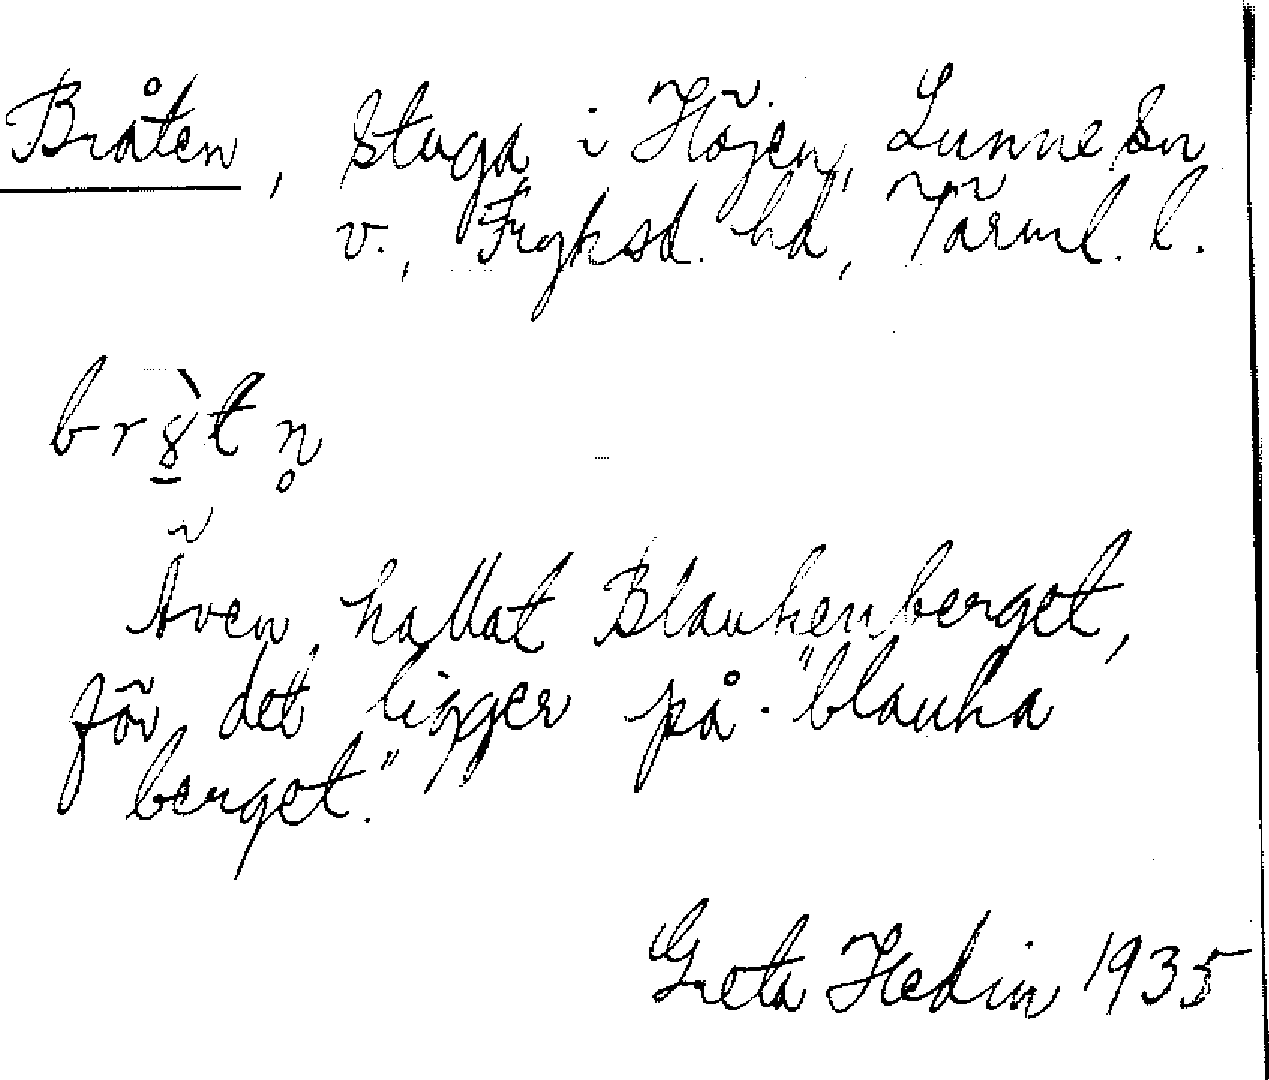 Bråten, stuga i Höjen, Sunne sn
v., Fryksd. hd, Värml. l.
brꞷ̀tn̥
Även kallat Blaukenberget,
för det ligger på "blauka
berget."
Greta Hedin 1935